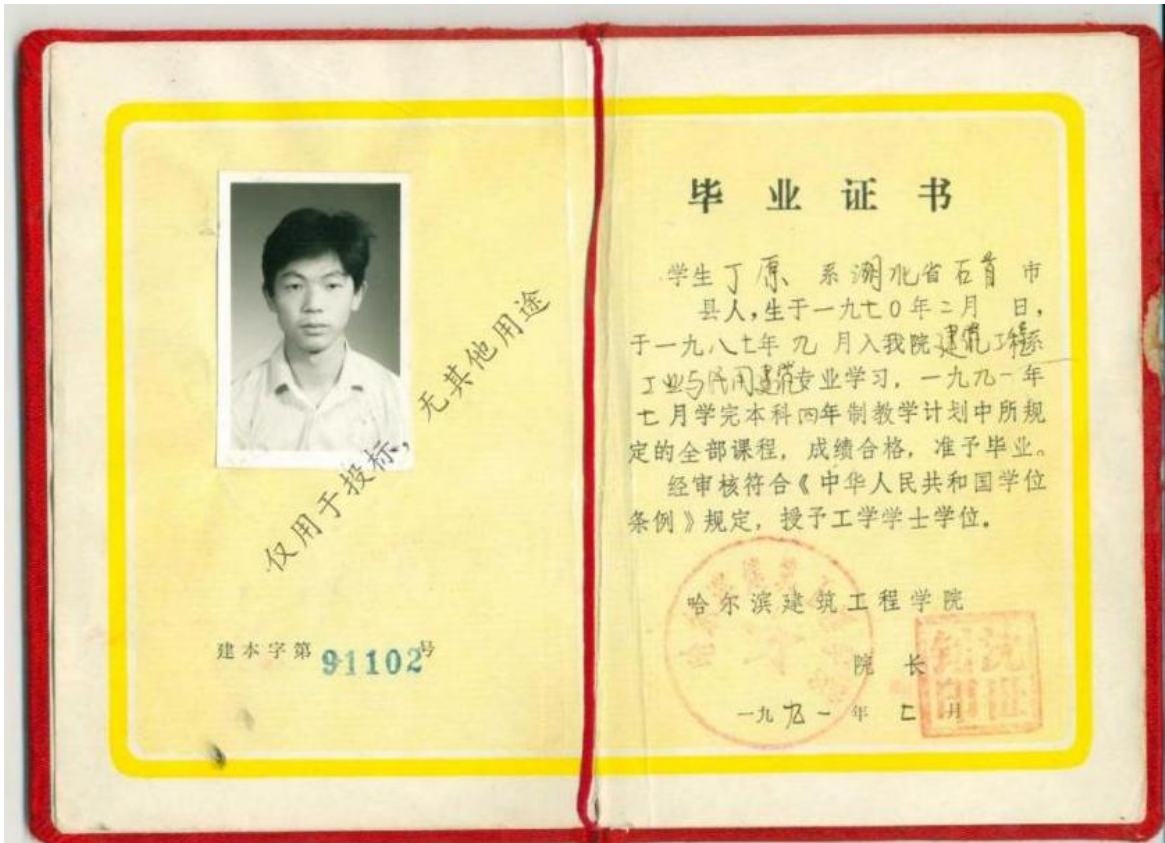 仅用于投标，无其他用途
建本字第 91102号
毕业证书
学生丁原 系湖北省石首 市
县人，生于一九七0年二月 日，
于一九八七年 九 月入我院建筑工程系
工业与民用建筑专业学习，一九九一年
七月学完本科四年制教学计划中所规
定的全部课程，成绩合格，准予毕业。
经审核符合《中华人民共和国学位
条例》规定，授予工学学士学位。
哈尔滨建筑工程学院
院 长
一九九一 年 七 月